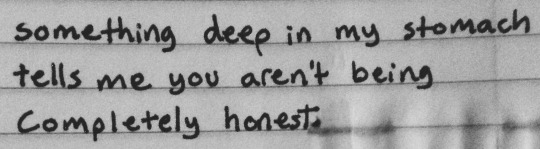 something deep in my stomach
tells me you aren't being
Completely honest.